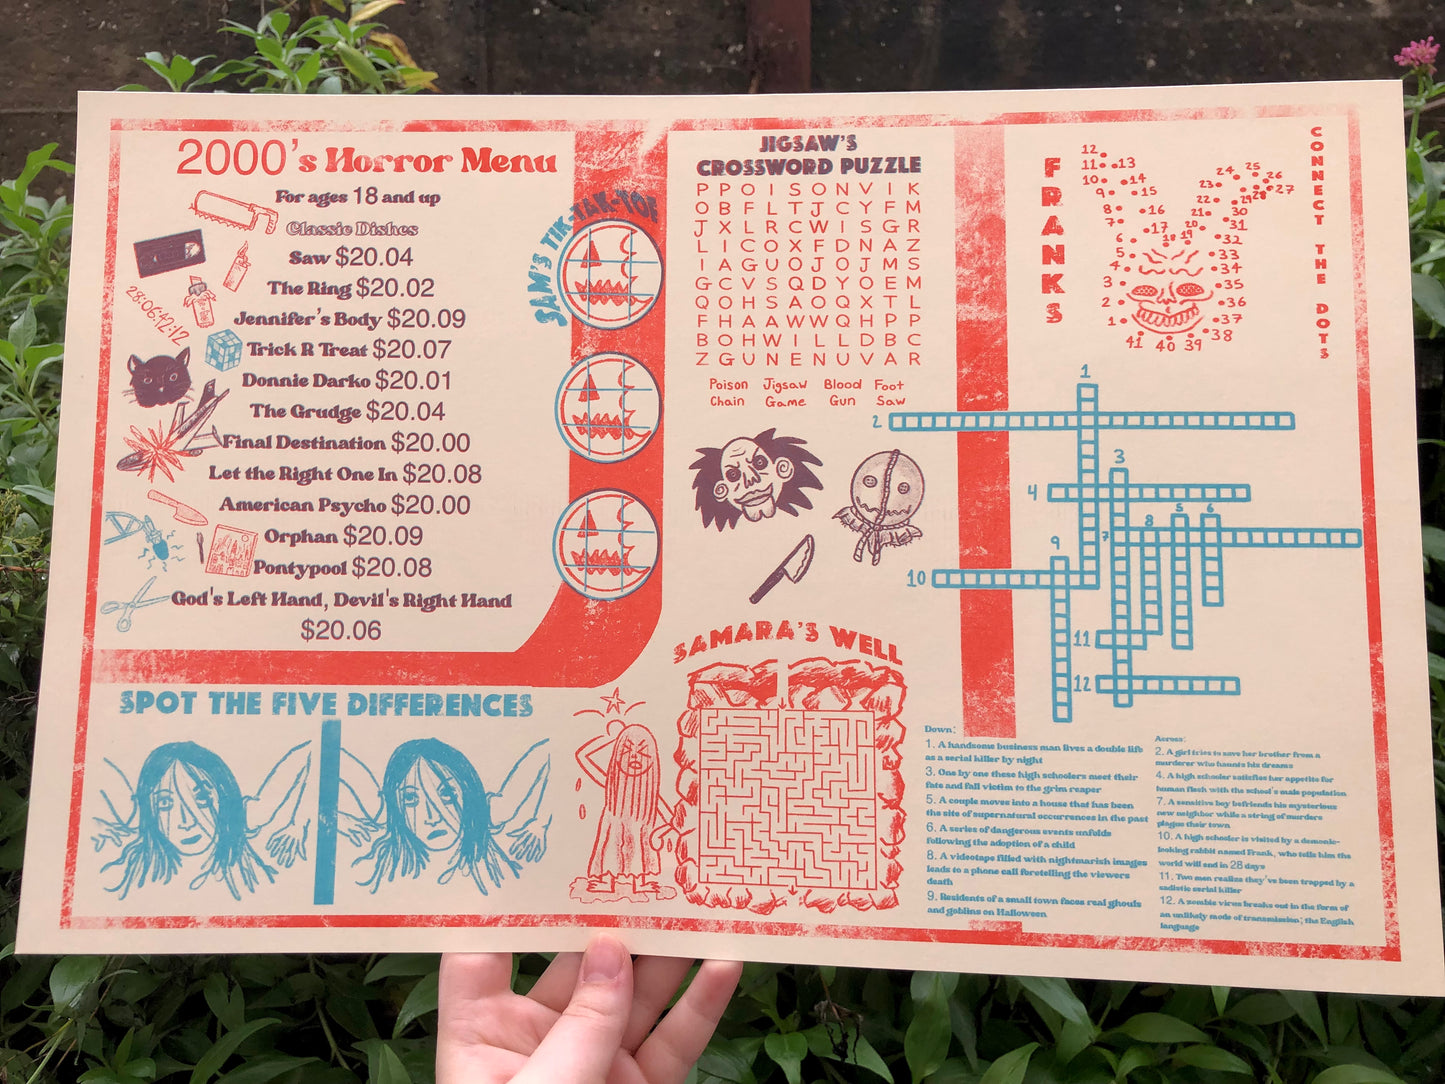 2000's Horror Menu
For ages 18 and up
Classic Dishes
Saw $20.04
The Ring $20.02
Jennifer's Body $20.09
Trick R Treat $20.07
Donnie Darko $20.01
The Grudge $20.04
Final Destination $20.00
Let the Right One In $20.08
American Psycho $20.00
Orphan $20.09
Pontypool $20.08
God's Left Hand, Devil's Right Hand
$20.06
28:06:42:12
SAM'S TIK-TAK-TOE
SPOT THE FIVE DIFFERENCES
JIGSAW'S
CROSSWORD PUZZLE
P P O I S O N V I K
O B F L T J C Y F M
J X L R C W I S G R
L I C O X F D N A Z
I A G U O J O J M S
G C V S Q D Y O E M
Q O H S A O Q X T L
F H A A W W Q H P P
B O H W I L L D B C
Z G U N E N U V A R
Poison Jigsaw Blood Foot
Chain Game Gun Saw
SAMARA'S WELL
FRANKS
CONNECT THE DOTS
1
2
3
4
5
6
7
8
9
10
11
12
13
14
15
16
17
18
19
20
21
22
23
24
25
26
27
28
29
30
31
32
33
34
35
36
37
38
39
40
41
1
2
3
4
5
6
7
8
9
10
11
12
Down:
1. A handsome business man lives a double life
as a serial killer by night
3. One by one these high schoolers meet their
fate and fall victim to the grim reaper
5. A couple moves into a house that has been
the site of supernatural occurrences in the past
6. A series of dangerous events unfolds
following the adoption of a child
8. A videotape filled with nightmarish images
leads to a phone call foretelling the viewers
death
9. Residents of a small town faces real ghouls
and goblins on Halloween
Across:
2. A girl tries to save her brother from a
murderer who haunts his dreams
4. A high schooler satisfies her appetite for
human flesh with the school's male population
7. A sensitive boy befriends his mysterious
new neighbor while a string of murders
plague their town
10. A high schooler is visited by a demonic-
looking rabbit named Frank, who tells him the
world will end in 28 days
11. Two men realize they've been trapped by a
sadistic serial killer
12. A zombie virus breaks out in the form of
an unlikely mode of transmission; the English
language